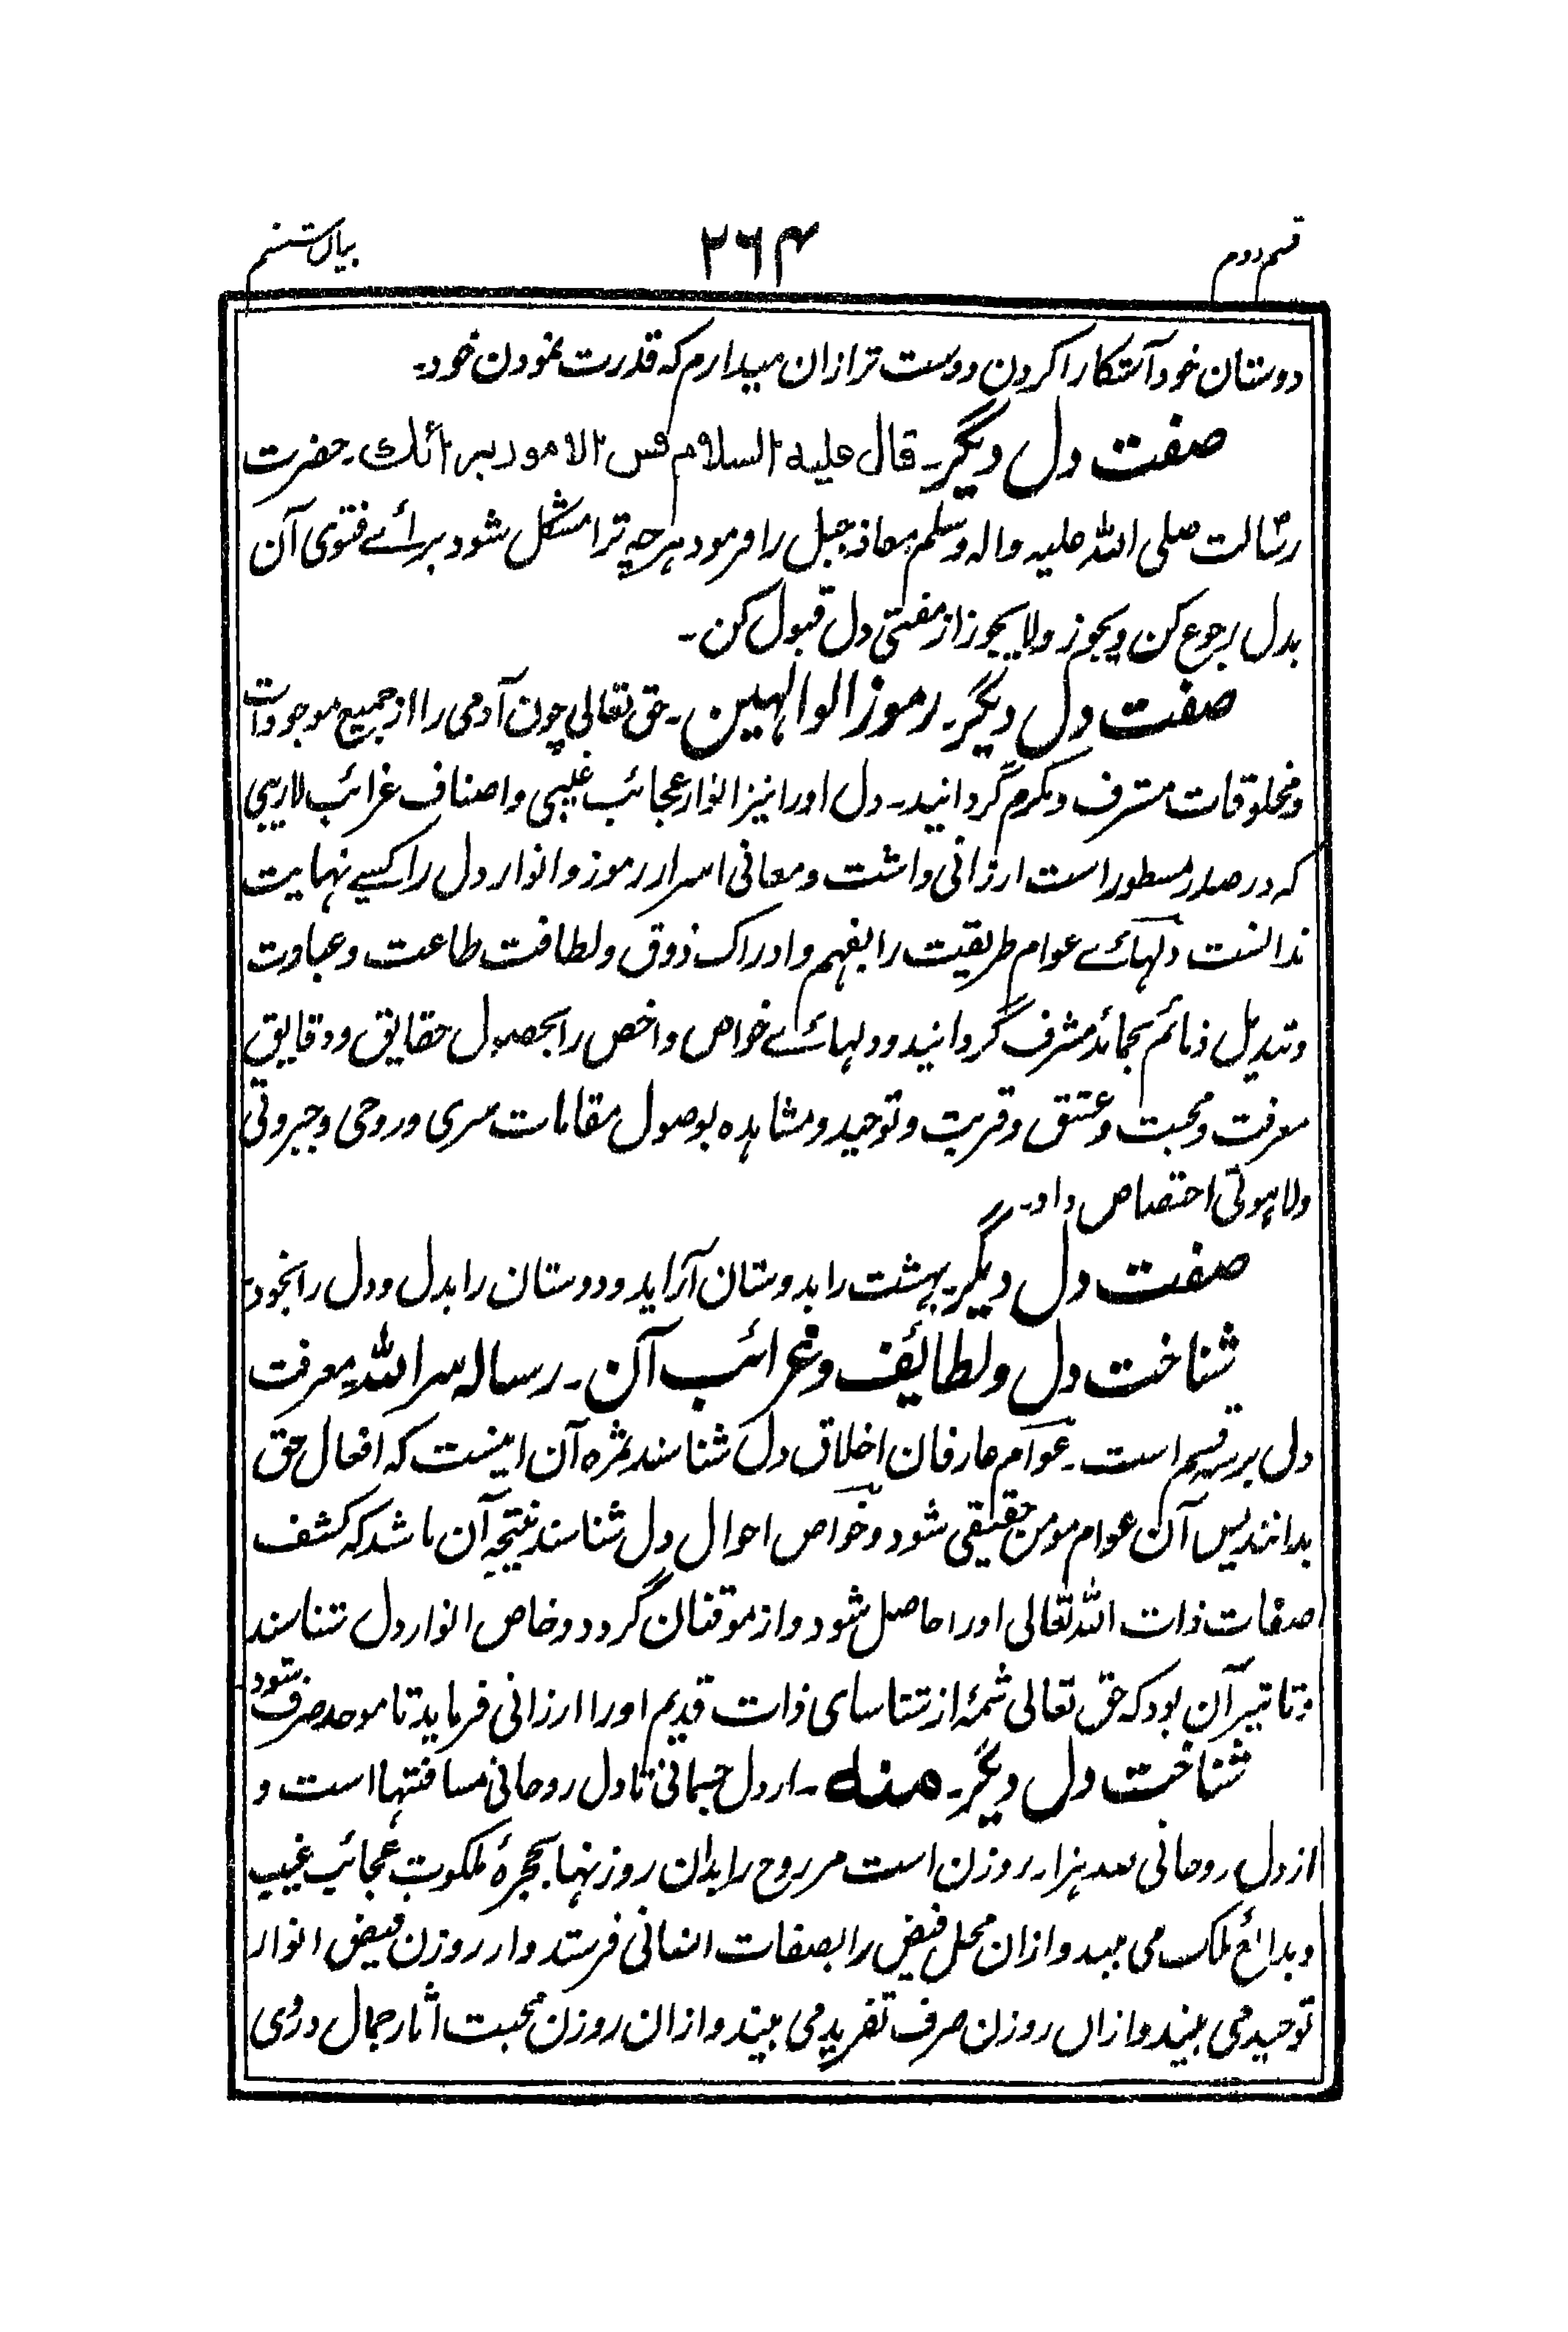 قسم دوم
۲۶۴
بیان ششم
دوستان خود آشکارا کردن دوست تر ازان میدارم که قدرت نمودن خود۔
صفت دل دیگر۔ قال علیه السلام قس الامور برائك۔ حضرت
رسالت صلی الله علیه واله وسلم معاذ جبل را فرمود هرچه ترا مشکل شود برائے فتوی آن
بدل رجوع کن و یجوز ولا یجوز از مفتی دل قبول کن۔
صفت دل دیگر۔ رموز الوالهین۔ حق تعالی چون آدمی را از جمیع موجودات
و مخلوقات مشرف و مکرم گردانید۔ دل اورا نیز انوار عجائب غیبی و اصناف غرائب لاریبی
که در صدر مسطور است ارزانی داشت و معانی اسرار رموز و انوار دل را کسے نهایت
ندانست دلهائے عوام طریقت را بفهم و ادراک ذوق و لطافت طاعت و عبادت
و تبدیل ذمائم بحمائد مشرف گردانید و دلهائے خواص و اخص را بحصول حقایق و دقایق
معرفت و محبت و عشق و قربت و توحید و مشاهده بوصول مقامات سری و روحی و جبروتی
ولاهوتی اختصاص داد۔
صفت دل دیگر۔ بهشت را بدوستان آراید و دوستان را بدل و دل را بخود۔
شناخت دل و لطایٔف و غرائب آن۔ رساله سر الله۔ معرفت
دلی بر سه قسم است۔ عوام عارفان اخلاق دل شناسند ثمره آن اینست که افعال حق
بدانند پس آن عوام مومن حقیقی شود و خواص احوال دل شناسند نتیجهٔ آن باشد که کشف
صفات ذات الله تعالی اورا حاصل شود و از موقنان گردد و خاص انوار دل شناسند
و تاثیر آن بود که حق تعالی شمهٔ از شناسای ذات قدیم اورا ارزانی فرماید تا موحد صرف شود
شناخت دل دیگر۔ منه۔ از دل جسمانی تا دل روحانی مسافتها است و
از دل روحانی سه هزار روزن است مر روح را بدان روزنها بحجرهٔ ملکوت عجائب غیب
و بدائع ملک می بیند و ازان محل فیض را بصفات انسانی فرستد و از روزن فیض انوار
توحید می بیند و ازاں روزن صرف تفرید می بیند و ازان روزن محبت اثار جمال در وی